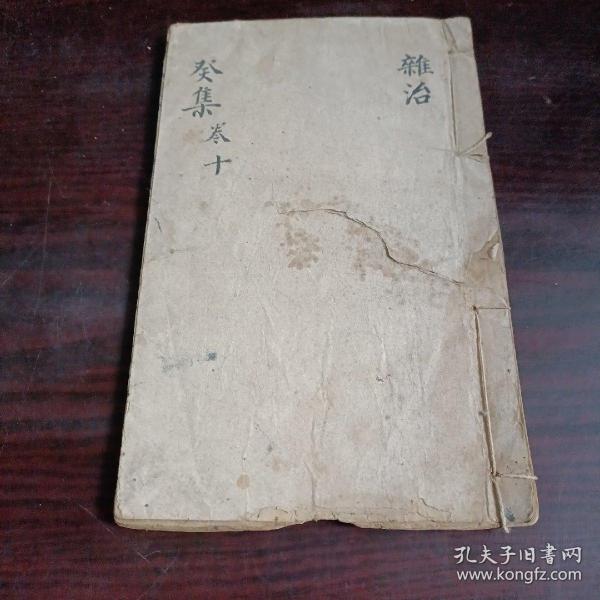 雜治
癸集卷十
孔夫子旧書网
www.kongfz.com